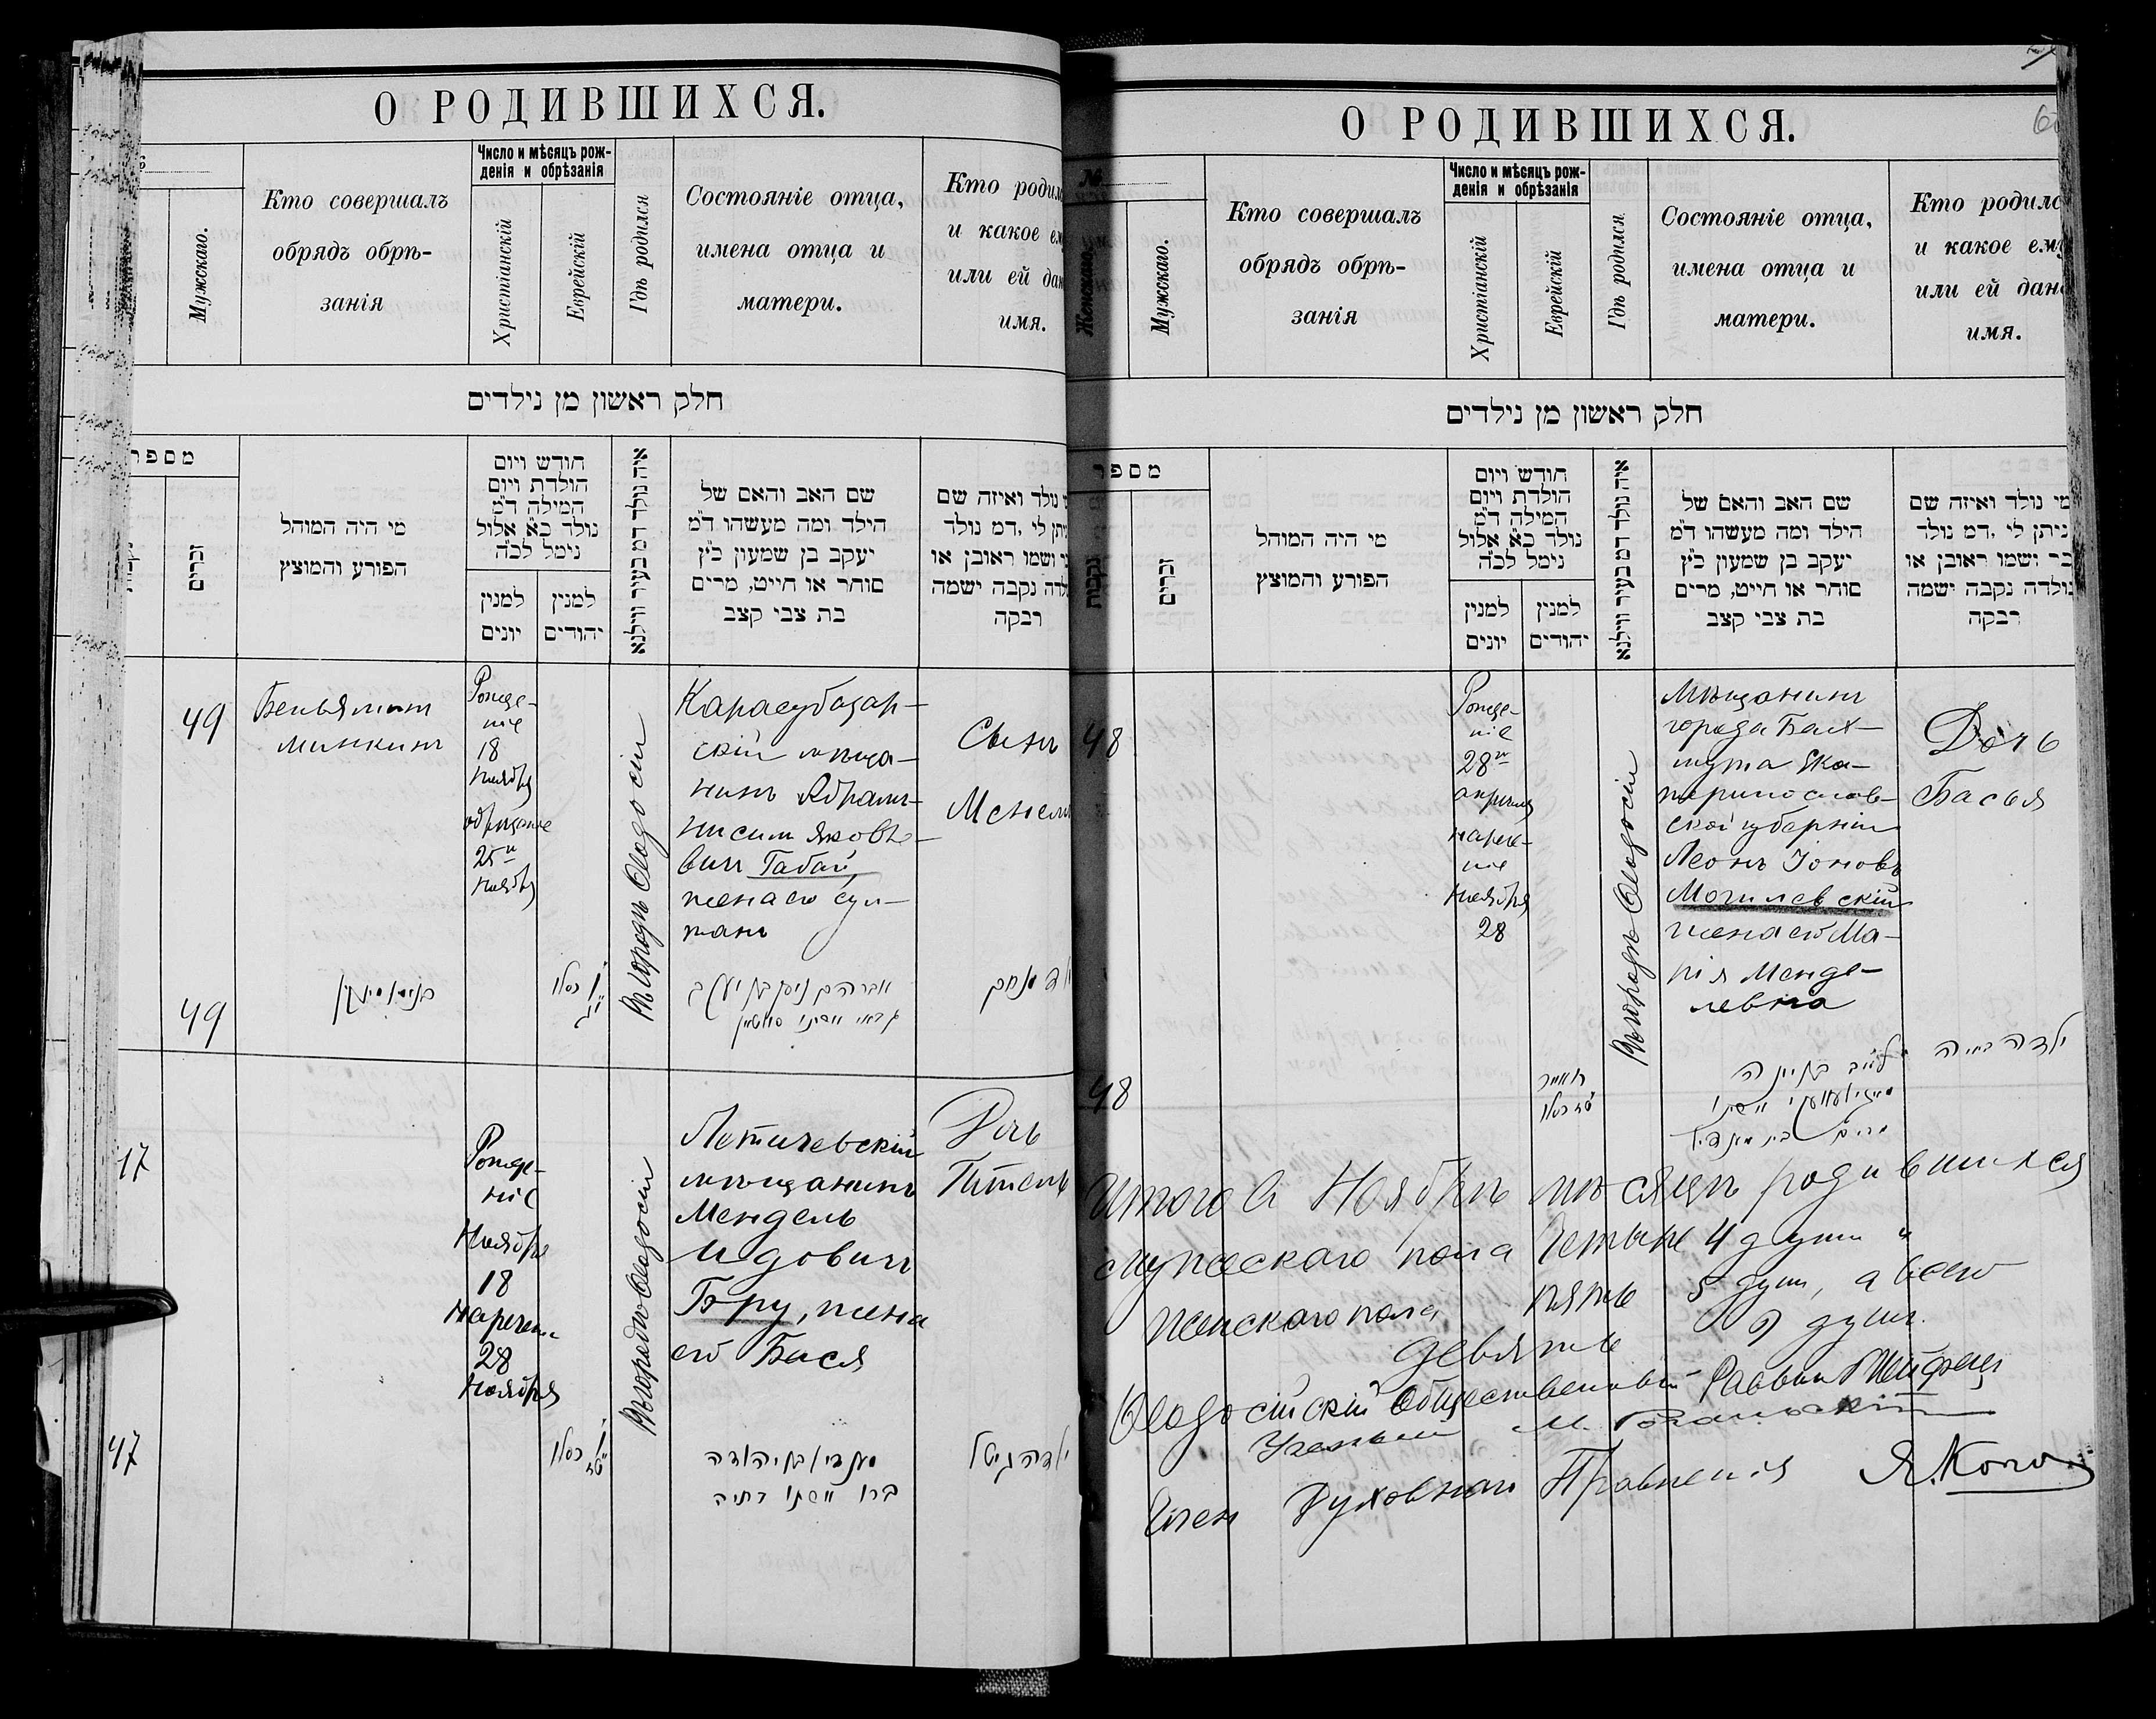 О РОДИВШИХСЯ.
Мужскаго.
Кто совершалъ
обрядъ обрѣ-
занія
Число и мѣсяцъ рож-
денія и обрѣзанія
Христіанскій
Еврейскій
Гдѣ родился
Состояніе отца,
имена отца и
матери.
Кто родил
и какое ем
или ей дан
имя.
חלק ראשון מן נילדים
מספר
זכרים
מי היה המוהל
הפורע והמוצץ
חודש ויום
הולדת ויום
המילה ד״מ
נולד כ״א אלול
נימל לכ״ה
למנין
יונים
למנין
יהודים
איה נולד דמ בעיר ווילנא
שם האב והאם של
הילד ומה מעשהו ד״מ
יעקב בן שמעון כ״ץ
סוחר או חייט, מרים
בת צבי קצב
נולד ואיזה שם
יתן לי, דמ נולד
ושמו ראובן או
לדה נקבה ישמה
רבקה
49
Беньяминъ
Минкинъ
Рожде-
ніе
18
Ноября
обрѣзаніе
25го
Ноября
Въ городѣ Ѳеодосіи
Карасубазар-
скій мѣща-
нинъ Абрамъ-
Нисим Яковле-
вич Габай,
жена его Сул-
танъ
Сынъ
49
בנימין מינקין
כסלו
אברהם ניסן בן יעקב
17
Рожде-
ніе
Ноября
18
Наречен
28
Ноября
Въ городѣ Ѳеодосіи
Летичевскій
мѣщанинъ
Мендель
Идович
Беру, жена
его Бася
Дочь
Гитель
47
כסלו
מענדיל בן יהודה
בערו ואשתו בתיה
ילדה גיטל
О РОДИВШИХСЯ.
№
Женскаго.
Мужскаго.
Кто совершалъ
обрядъ обрѣ-
занія
Число и мѣсяцъ рож-
денія и обрѣзанія
Христіанскій
Еврейскій
Гдѣ родился
Состояніе отца,
имена отца и
матери.
Кто родилс
и какое ему
или ей дано
имя.
חלק ראשון מן נילדים
מספר
נקבות
זכרים
מי היה המוהל
הפורע והמוצץ
חודש ויום
הולדת ויום
המילה ד״מ
נולד כ״א אלול
נימל לכ״ה
למנין
יונים
למנין
יהודים
איה נולד דמ בעיר ווילנא
שם האב והאם של
הילד ומה מעשהו ד״מ
יעקב בן שמעון כ״ץ
סוחר או חייט, מרים
בת צבי קצב
מי נולד ואיזה שם
ניתן לי, דמ נולד
בר ושמו ראובן או
נולדה נקבה ישמה
רבקה
48
Рожде-
ніе
28го
апрѣля
нарече-
ніе
Ноября
28
Въ городѣ Ѳеодосіи
Мѣщанинъ
города Бах-
мута Ека-
теринослав-
ской губерніи
Леонъ Іоновъ
Могилевскій
жена его Ма-
рія Менде-
левна
Дочь
Басья
48
כסלו
לייב בן יונה
ואשתו
ילדה
Итого въ Ноябрѣ мѣсяцѣ родившихся
мужескаго пола Четыре 4 души и
женскаго пола пять 5 душ, а всего
девять 9 душъ.
Ѳеодосійскій Общественный Раввинъ
Ученый М.
Член Духовнаго Правленія Я.